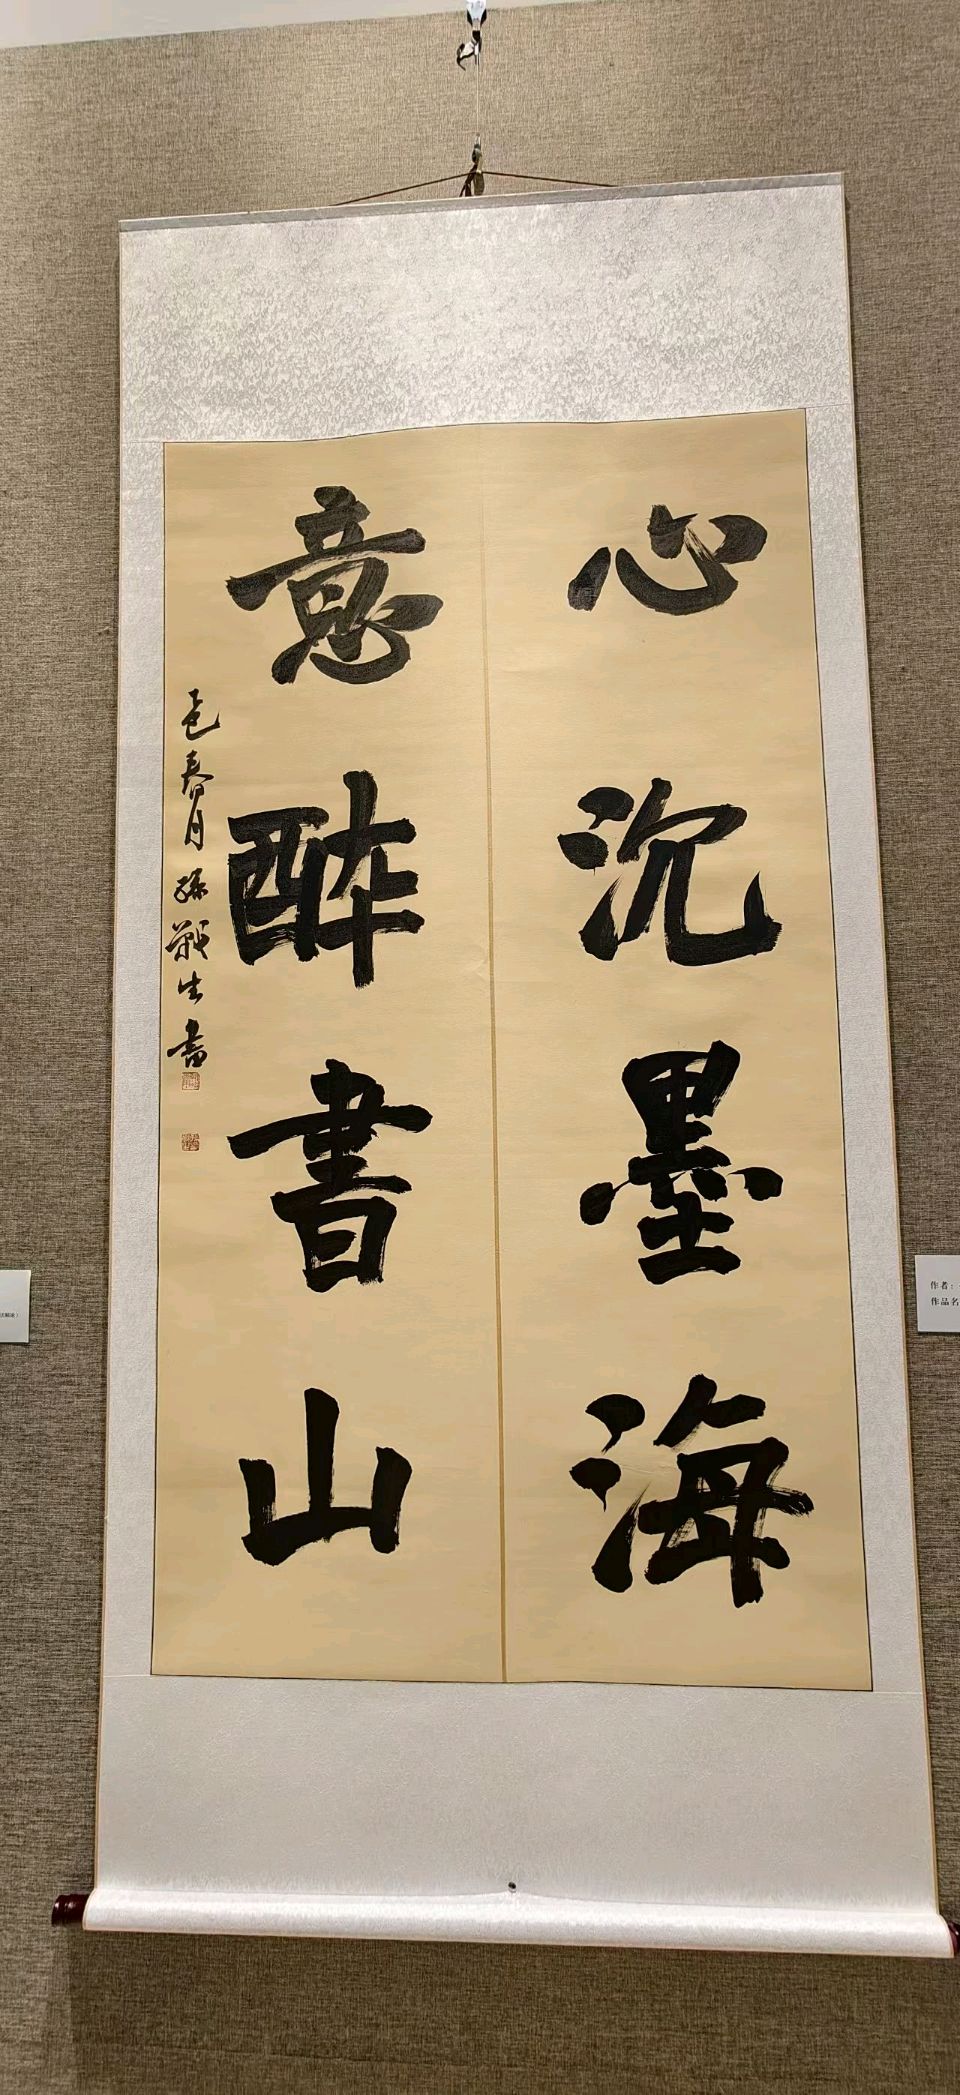 心沉墨海
意醉書山
春月孫
生書
作者：
作品名